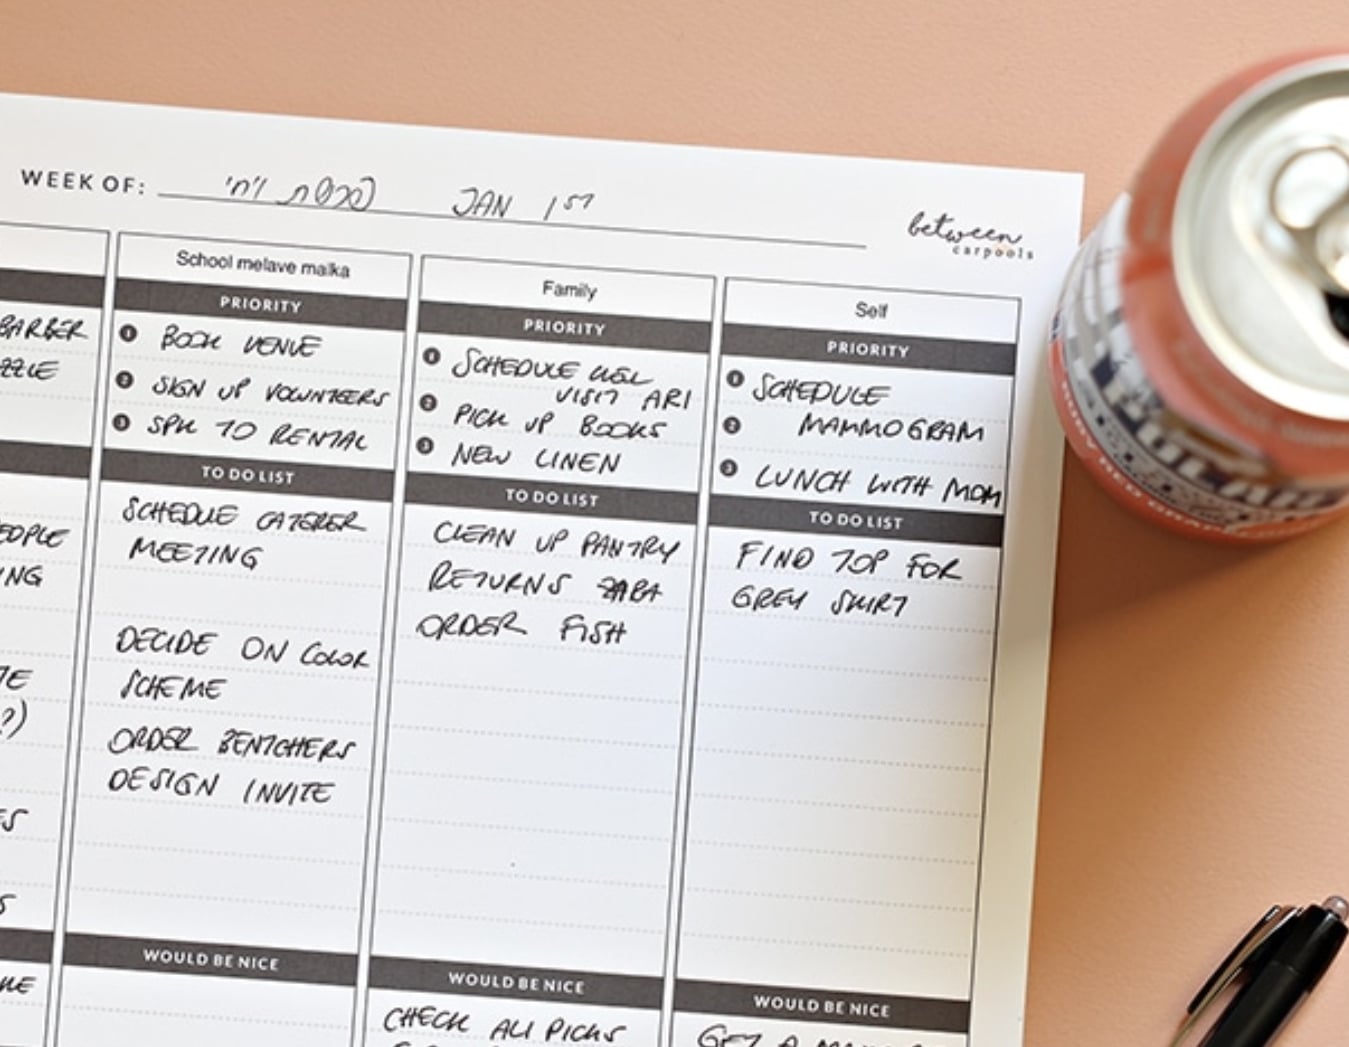 WEEK OF: פרשת ויחי JAN 1ST
between
carpools
BARBER
ZZLE
EOPLE
ING
TE
?)
ES
S
School melave malka
PRIORITY
1 BOOK VENUE
2 SIGN UP VOLUNTEERS
3 SPK TO RENTAL
TO DO LIST
SCHEDULE CATERER
MEETING
DECIDE ON COLOR
SCHEME
ORDER BENTCHERS
DESIGN INVITE
WOULD BE NICE
Family
PRIORITY
1 SCHEDULE WELL
VISIT ARI
2 PICK UP BOOKS
3 NEW LINEN
TO DO LIST
CLEAN UP PANTRY
RETURNS ZARA
ORDER FISH
WOULD BE NICE
CHECK ALI PICKS
Self
PRIORITY
1 SCHEDULE
2 MAMMOGRAM
3 LUNCH WITH MOM
TO DO LIST
FIND TOP FOR
GREY SKIRT
WOULD BE NICE
GET A